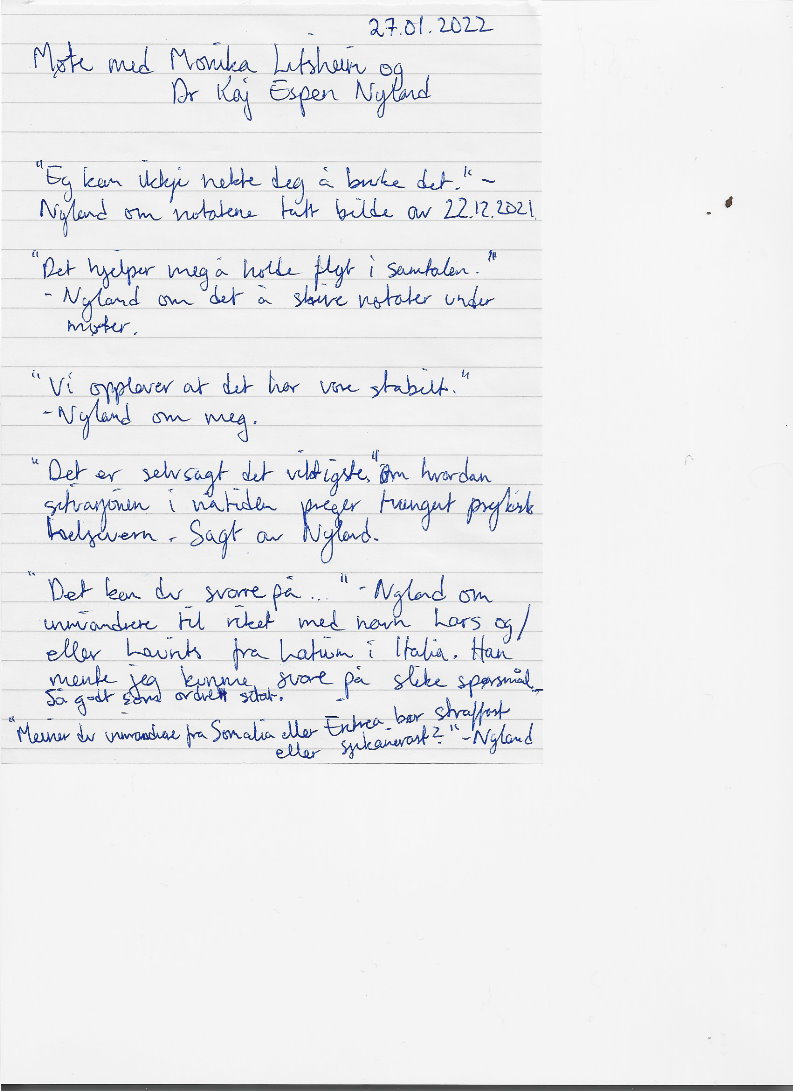 27.01.2022
Møte med Monika Litsheim og
Dr Kaj Espen Nyland
"Eg kan ikkje nekte deg å bruke det." -
Nyland om notatene tatt bilde av 22.12.2021.
"Det hjelper meg å holde flyt i samtalen."
- Nyland om det å skrive notater under
møter.
"Vi opplever at det har vore stabilt."
- Nyland om meg.
"Det er selvsagt det viktigste." om hvordan
situasjonen i nåtiden preger tvungent psykisk
helsevern. Sagt av Nyland.
"Det kan du svare på..." - Nyland om
innvandrere til riket med navn Lars og/
eller Laurits fra Latium i Italia. Han
mente jeg kunne svare på slike spørsmål.
Så godt som ordrett sitat.
"Meiner du innvandrere fra Somalia eller Eritrea bør straffast
eller sjikanerast?" - Nyland